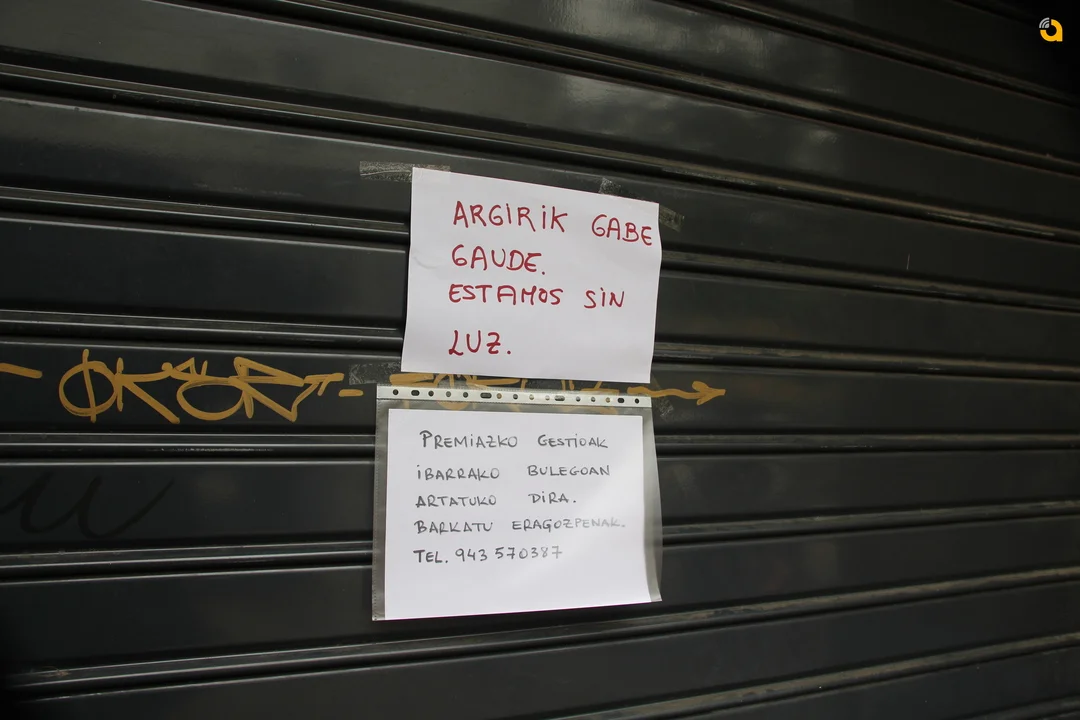 ARGIRIK GABE
GAUDE.
ESTAMOS SIN
LUZ.
PREMIAZKO GESTIOAK
IBARRAKO BULEGOAN
ARTATUKO DIRA.
BARKATU ERAGOZPENAK.
TEL. 943 570387